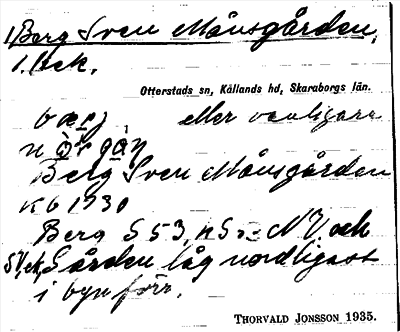 1. Berg Sven Månsgården,
1. Eck.
Otterstads sn, Kållands hd, Skaraborgs län.
bærj eller vanligare
Berg Sven Månsgården
K6 1930
Berg S 53, NV och
SV, Gården låg nordligast
i byn förr.
THORVALD JONSSON 1935.